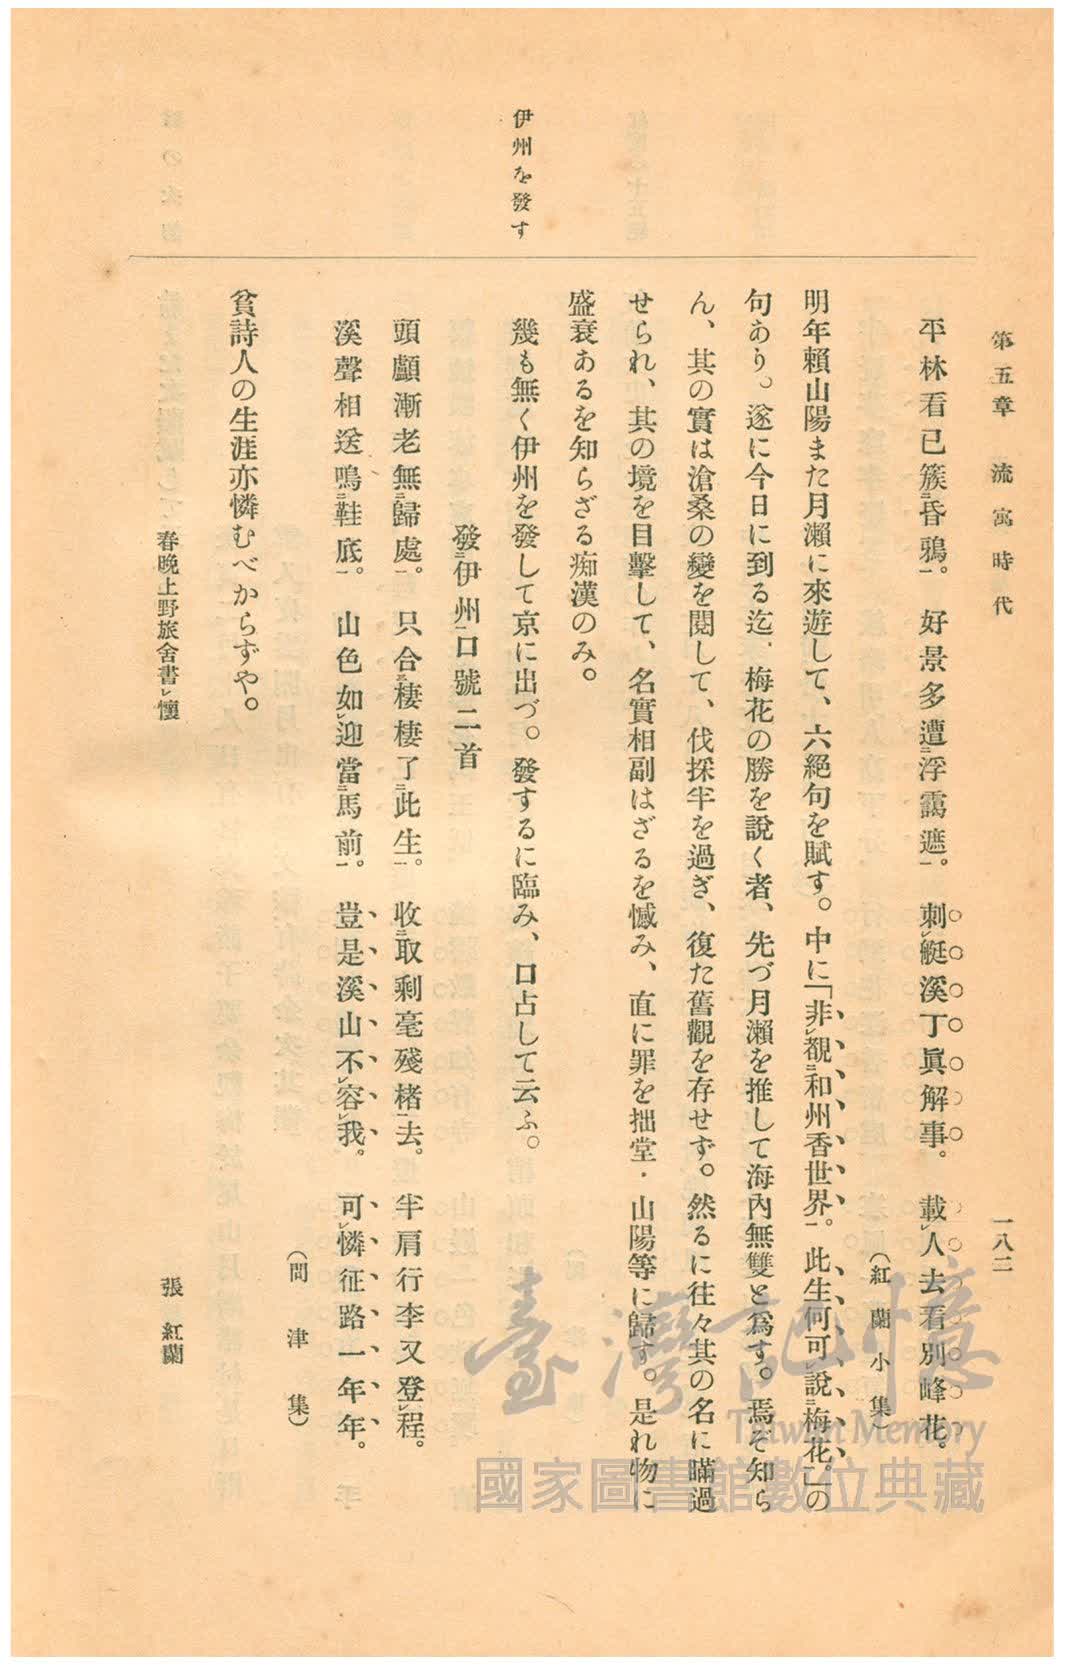 第五章　流寓時代　一八二
平林看已簇㆓昏鴉㆒。好景多遭㆓浮靄遮㆒。刺㆑艇溪丁眞解事。載㆑人去看別峰花。
（紅蘭小集）
明年賴山陽また月瀬に來遊して、六絕句を賦す。中に「非㆑覩㆓和州香世界㆒。此生何可㆑說㆓梅花㆒。」の
句あり。遂に今日に到る迄、梅花の勝を說く者、先づ月瀬を推して海內無雙と爲す。焉ぞ知ら
ん、其の實は滄桑の變を閱して、伐採半を過ぎ、復た舊觀を存せず。然るに往々其の名に瞞過
せられ、其の境を目擊して、名實相副はざるを憾み、直に罪を拙堂・山陽等に歸す。是れ物に
盛衰あるを知らざる痴漢のみ。
伊州を發す
幾も無く伊州を發して京に出づ。發するに臨み、口占して云ふ。
發㆓伊州㆒口號二首
頭顱漸老無㆓歸處㆒。只合㆓棲棲了㆓此生㆒。收㆓取剩毫殘楮㆒去。半肩行李又登㆑程。
溪聲相送鳴㆓鞋底㆒。山色如㆑迎當㆓馬前㆒。豈是溪山不㆑容㆑我。可㆑憐征路一年年。
（問津集）
貧詩人の生涯亦憐むべからずや。
春晚上野旅舍書㆑懷　張紅蘭
臺灣記憶
Taiwan Memory
國家圖書館數位典藏